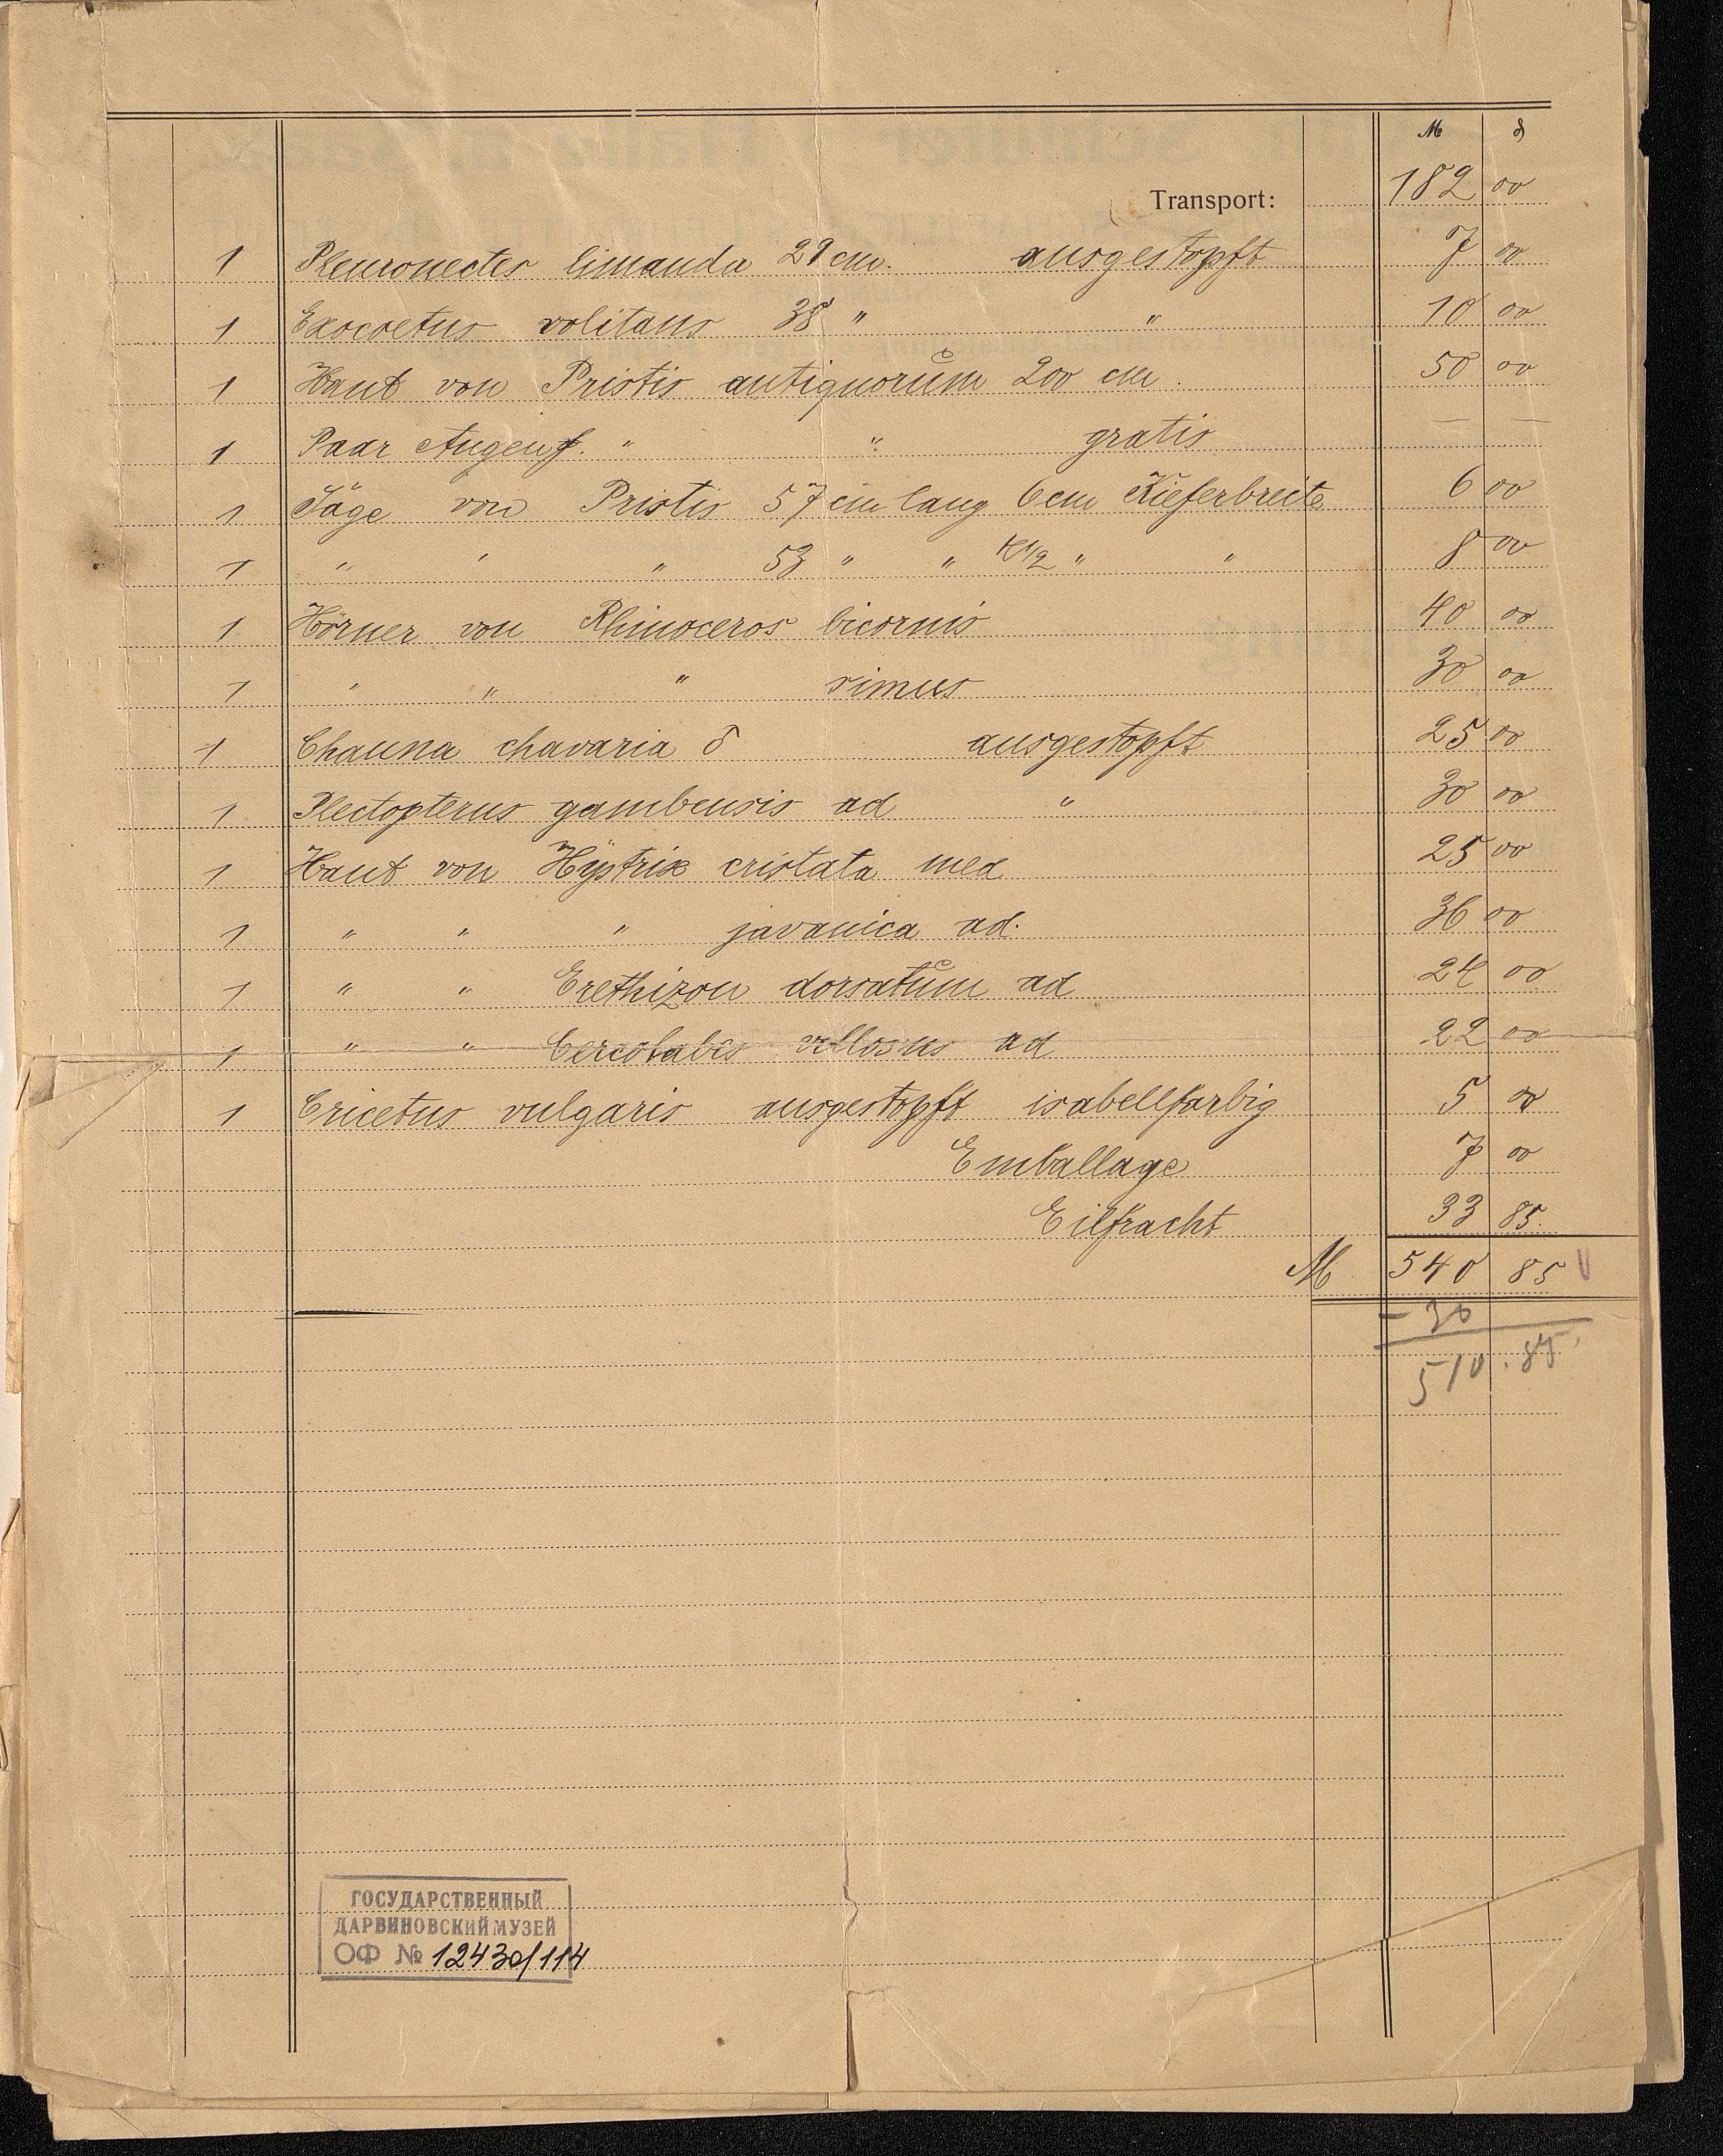 M ₰
Transport: 182 00
1 Pleuronectes limanda 29 cm. ausgestopft 7 00
1 Exocoetus volitans 38 " " 10 00
1 Haut von Pristis antiquorum 200 cm. 50 00
1 Paar Augen f. " " gratis — —
1 Säge von Pristis 57 cm lang 6 cm Kieferbreite 6 00
1 " " " 53 " " " " 8 00
1 Hörner von Rhinoceros bicornis 40 00
1 " " " simus 30 00
1 Chauna chavaria ♂ ausgestopft 25 00
1 Plectopterus gambensis ad " 30 00
1 Haut von Hystrix cristata med 25 00
1 " " " javanica ad. 36 00
1 " " Erethizon dorsatum ad 24 00
1 " " Cercolabes villosus ad 22 00
1 Cricetus vulgaris ausgestopft isabellfarbig 5 00
Emballage 7 00
Eilfracht 33 85.
M 540 85
- 30
510.85
ГОСУДАРСТВЕННЫЙ
ДАРВИНОВСКИЙ МУЗЕЙ
ОФ № 12430/114